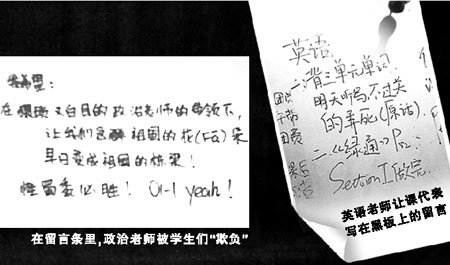 希望:
在猥琐又白目的政治老师的带领下,
让我们这群祖国的花(Fa)朵
早日变成祖国的栋梁!
留委必胜! Oh yeah!
在留言条里,政治老师被学生们“欺负”
英语:
一.背三单元单词.
明天听写不过关
的弄死(原话).
二.《绿通》
Section I 做完.
团费
英语老师让课代表
写在黑板上的留言